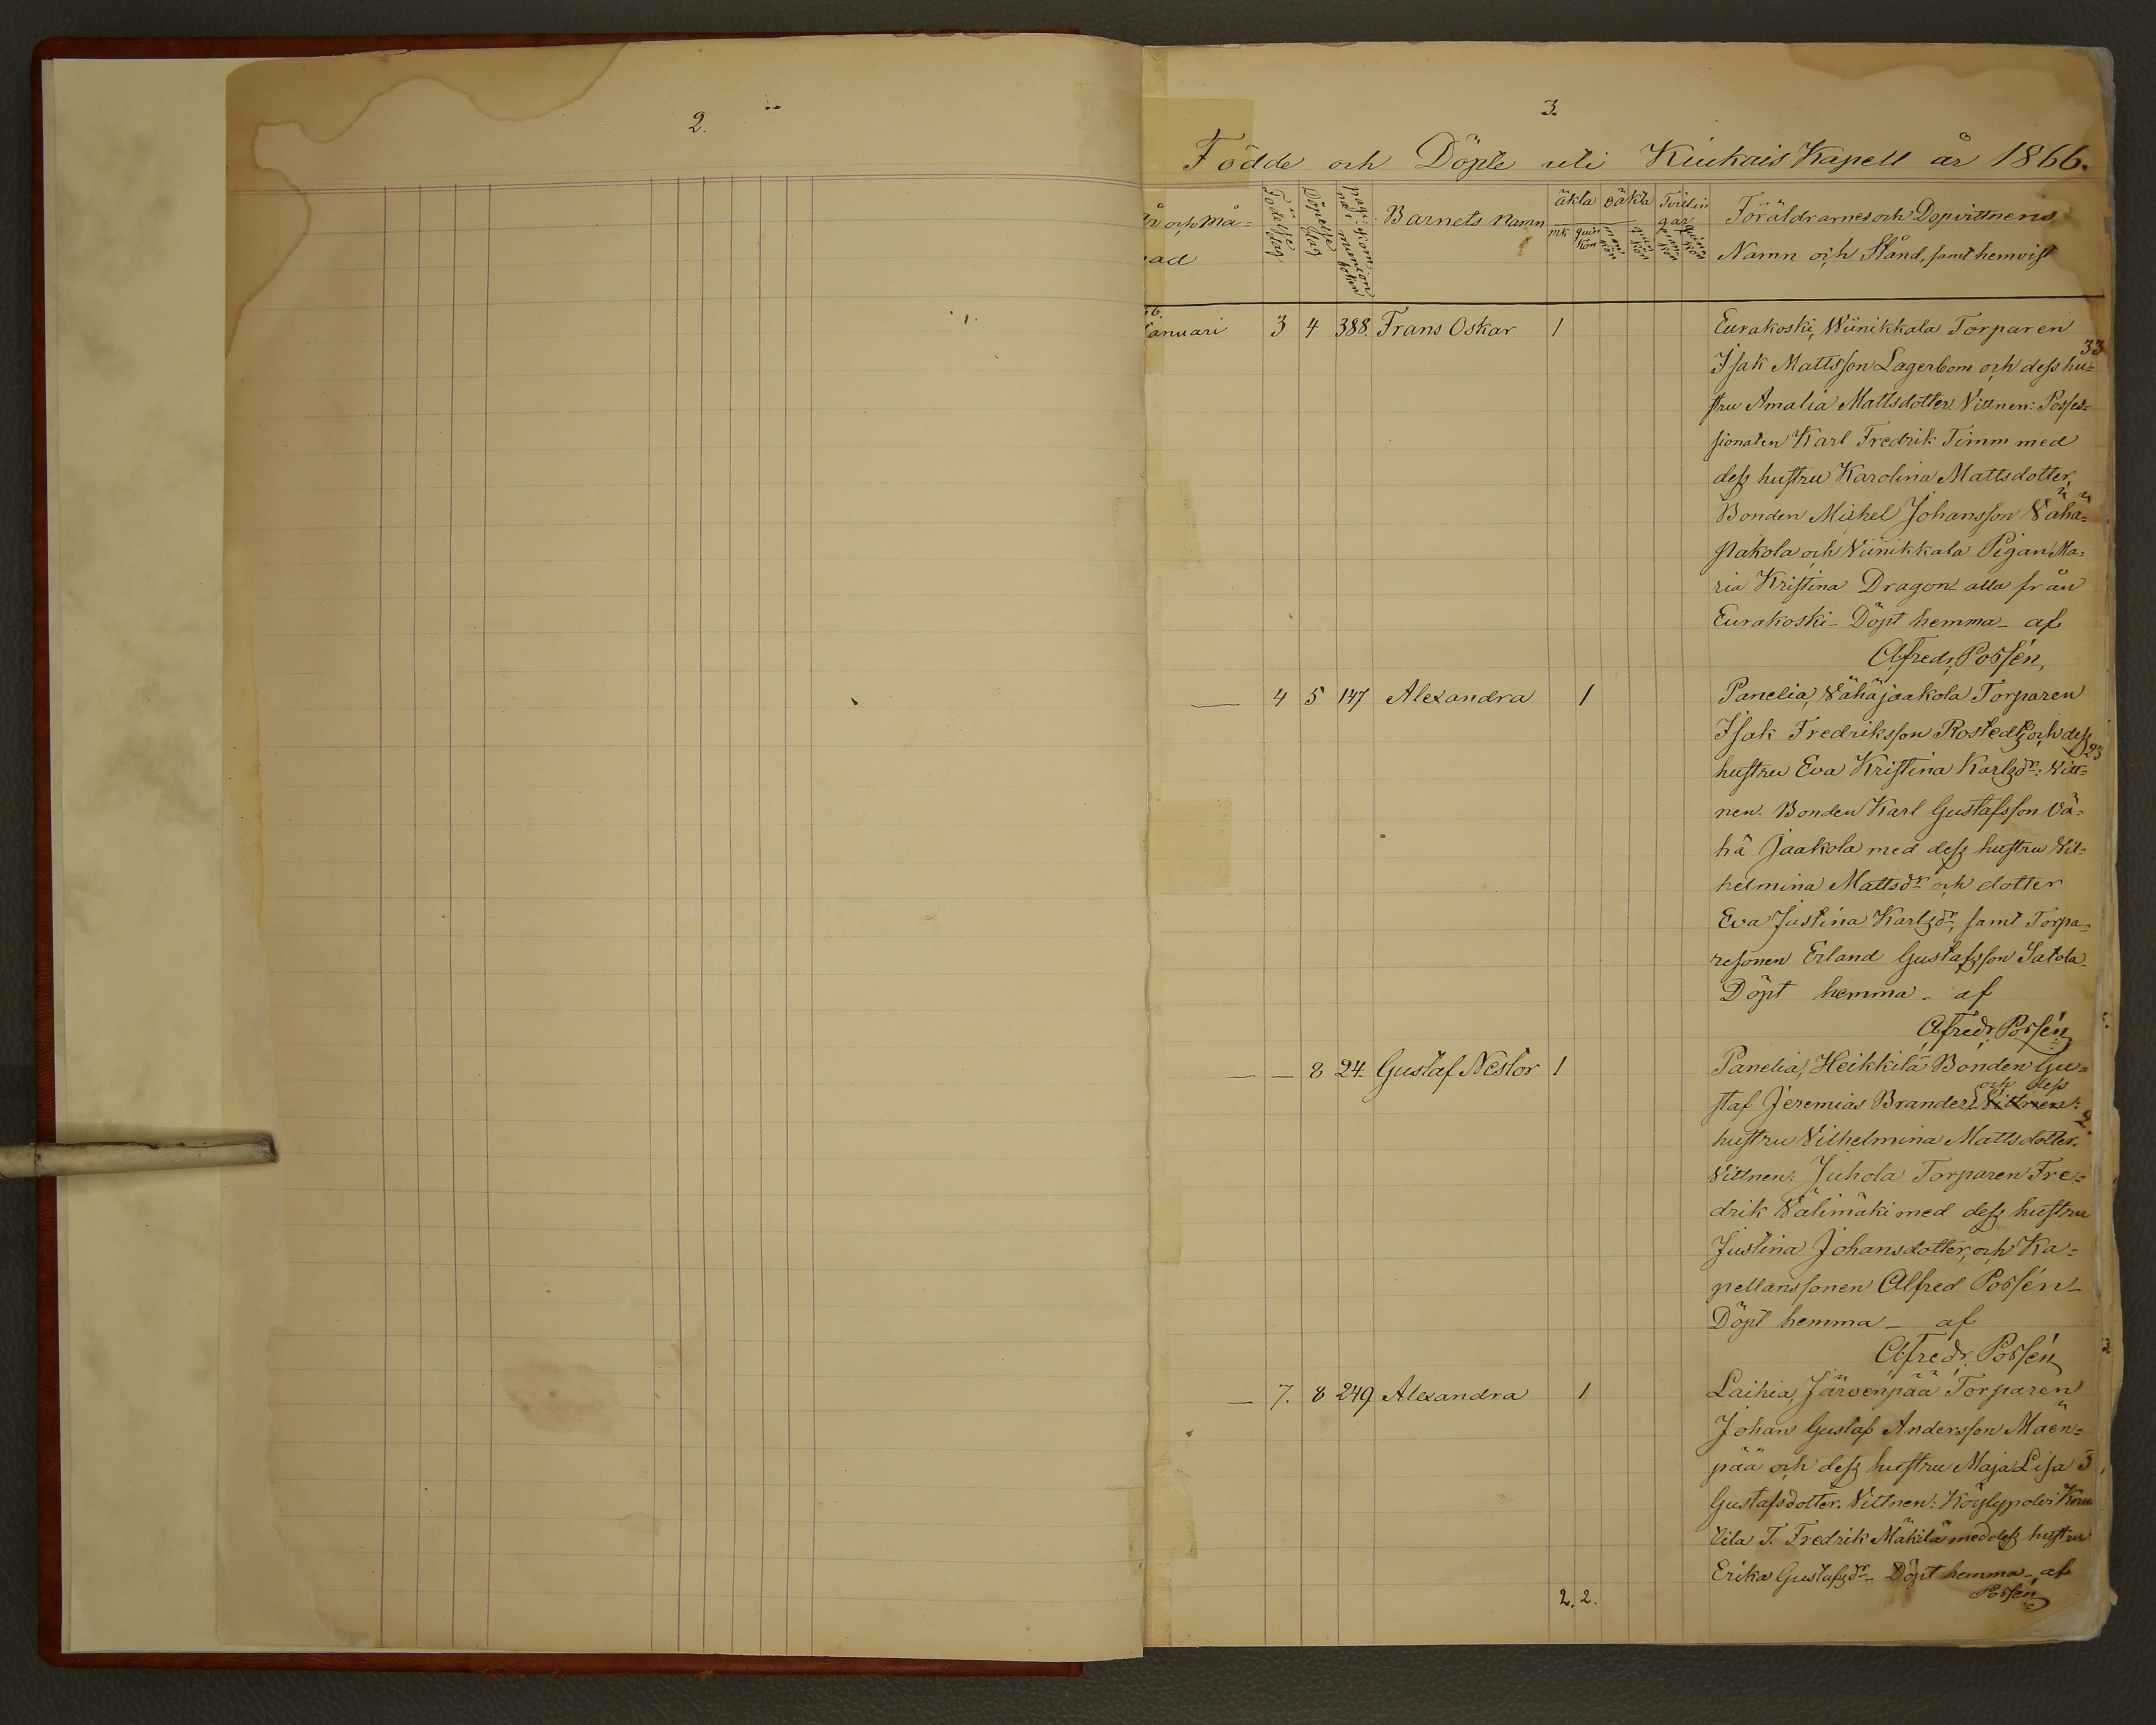 2.
3.
Födde och Döpte uti Kiukais Kapell år 1866.
År och Må=
nad
Födelse dag
Döpelse dag
pag: na i kommunion boken
Barnets Namn
äkta
oäkta
Tvillingar
mk
quin kön
man kön
quin kön
man kön
quin kön
Föräldrarnes och Dopvittnens
Namn och Stånd, samt hemvist
66.
Januari 3 4 388. Frans Oskar 1
Eurakoski, Wiinikkala Torparen
33
Isak Mattsson Lagerbom och dess hu=
stru Amalia Mattsdotter. Vittnen: Posses=
sionaten Karl Fredrik Timm med
dess hustru Karolina Mattsdotter,
Bonden Mickel Johansson Vähä=
stakola och Viinikkala Pigan Ma=
ria Kristina Dragon alla från
Eurakoski - Döpt hemma - af
Alfred. Possén,
— 4 5 147 Alexandra 1
Panelia, Vähäjaakola Torparen
Isak Fredriksson Rostedt och dess
23
hustru Eva Kristina Karlsdr: Vitt=
nen. Bonden Karl Gustafsson Vä=
hä Jaakola med dess hustru Vil=
helmina Mattsdr och dotter
Eva Justina Karlsdr, samt Torpa=
resonen Erland Gustafsson Satola
Döpt hemma - af
Alfred. Possén
— — 8 24. Gustaf Nestor 1
Panelia, Heikkilä Bonden Gu=
och dess
staf Jeremias Brander Vittnen:
2.
hustru Vilhelmina Mattsdotter.
Vittnen: Juhola Torparen Fre=
drik Välimäki med dess hustru
Justina Johansdotter, och Ka=
pellanssonen Alfred Possén -
Döpt hemma - af
Alfred. Possén
— 7. 8 249 Alexandra 1
Laihia, Järvenpää Torparen
Johan Gustaf Andersson Mäen=
pää och dess hustru Maja Lisa
3
Gustafsdotter. Vittnen: Köylypolvi
tila T. Fredrik Mäkilä med dess hustru
Erika Gustafsdr - Döpt hemma - af
Possén
2. 2.